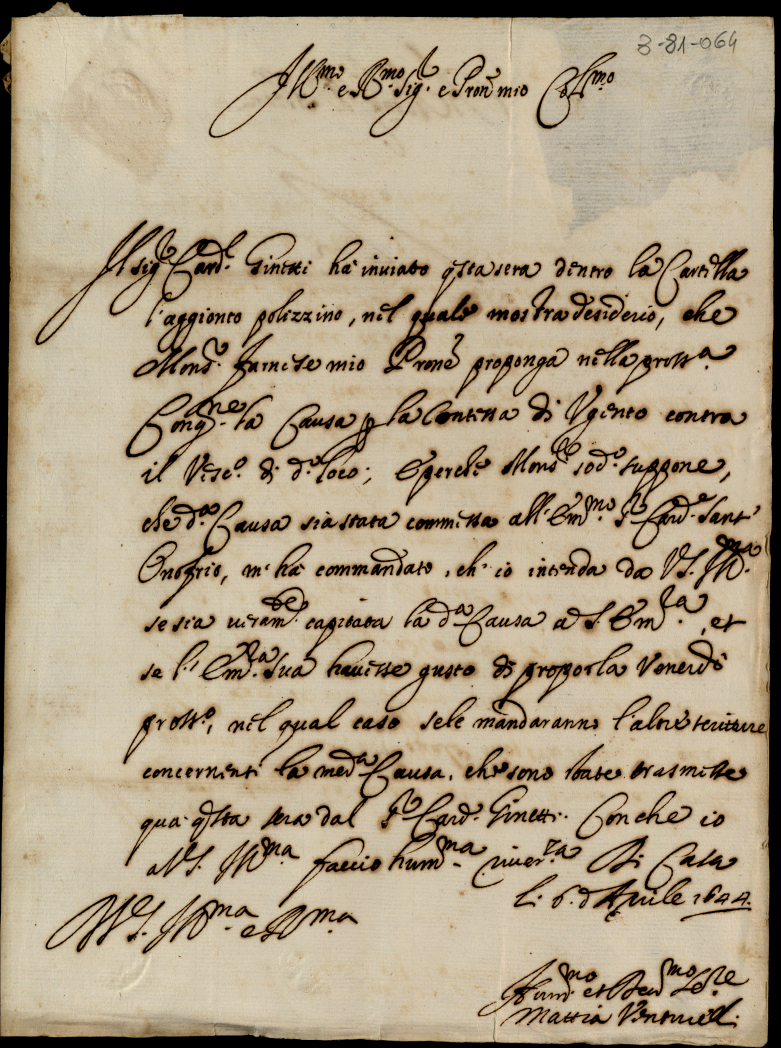 3-81-064
Ill.mo e R.mo Sig.r e Pron mio Coll.mo
Il sig.r Card.l Ginetti ha inviato q.sta sera dentro la Cartella
l'aggionto polizzino, nel quale mostra desiderio, che
Mons.r Farnese mio Prone proponga nella pross.a
Cong.ne la Causa p la Contessa di Ugento contra
il Vesc.o di d.o loco; E perche Mons.re sod.o suppone,
che d.a Causa sia stata commessa all'Em.mo S.r Card.le Sant'
Onofrio, m'ha commandato, ch'io intenda da V.S. Ill.ma
se sia veram.te capitata la d.a Causa a S. Em.za, et
se l'Em.za Sua havesse gusto di proporla Venerdi
pross.o, nel qual caso sele mandaranno l'altre scritture
concernenti la med.a Causa, che sono state trasmesse
qua q.sta sera dal S.r Card.l Ginetti. Con che io
a V.S. Ill.ma faccio hum.ma river.za Di Casa
li 6. d'Aprile 1644.
Di V.S. Ill.ma e R.ma
Hum.mo et Dev.mo Se.re
Mattia Venturelli